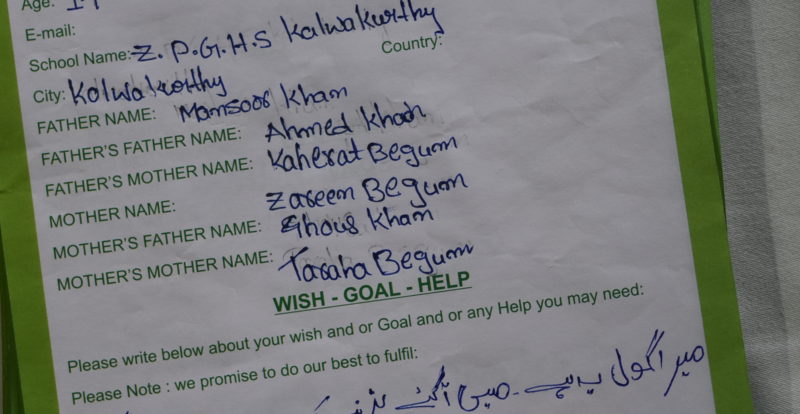 Age: 14
E-mail:
School Name: Z.P.G.H.S Kalwakurthy
Country:
City: Kalwakurthy
FATHER NAME: Mansoor Khan
FATHER'S FATHER NAME: Ahmed Khan
FATHER'S MOTHER NAME: Kaherat Begum
MOTHER NAME: Zareem Begum
MOTHER'S FATHER NAME: Ghous Khan
MOTHER'S MOTHER NAME: Taraha Begum
WISH - GOAL - HELP
Please write below about your wish and or Goal and or any Help you may need:
Please Note : we promise to do our best to fulfil:
میرا گول یہ ہے۔ میں